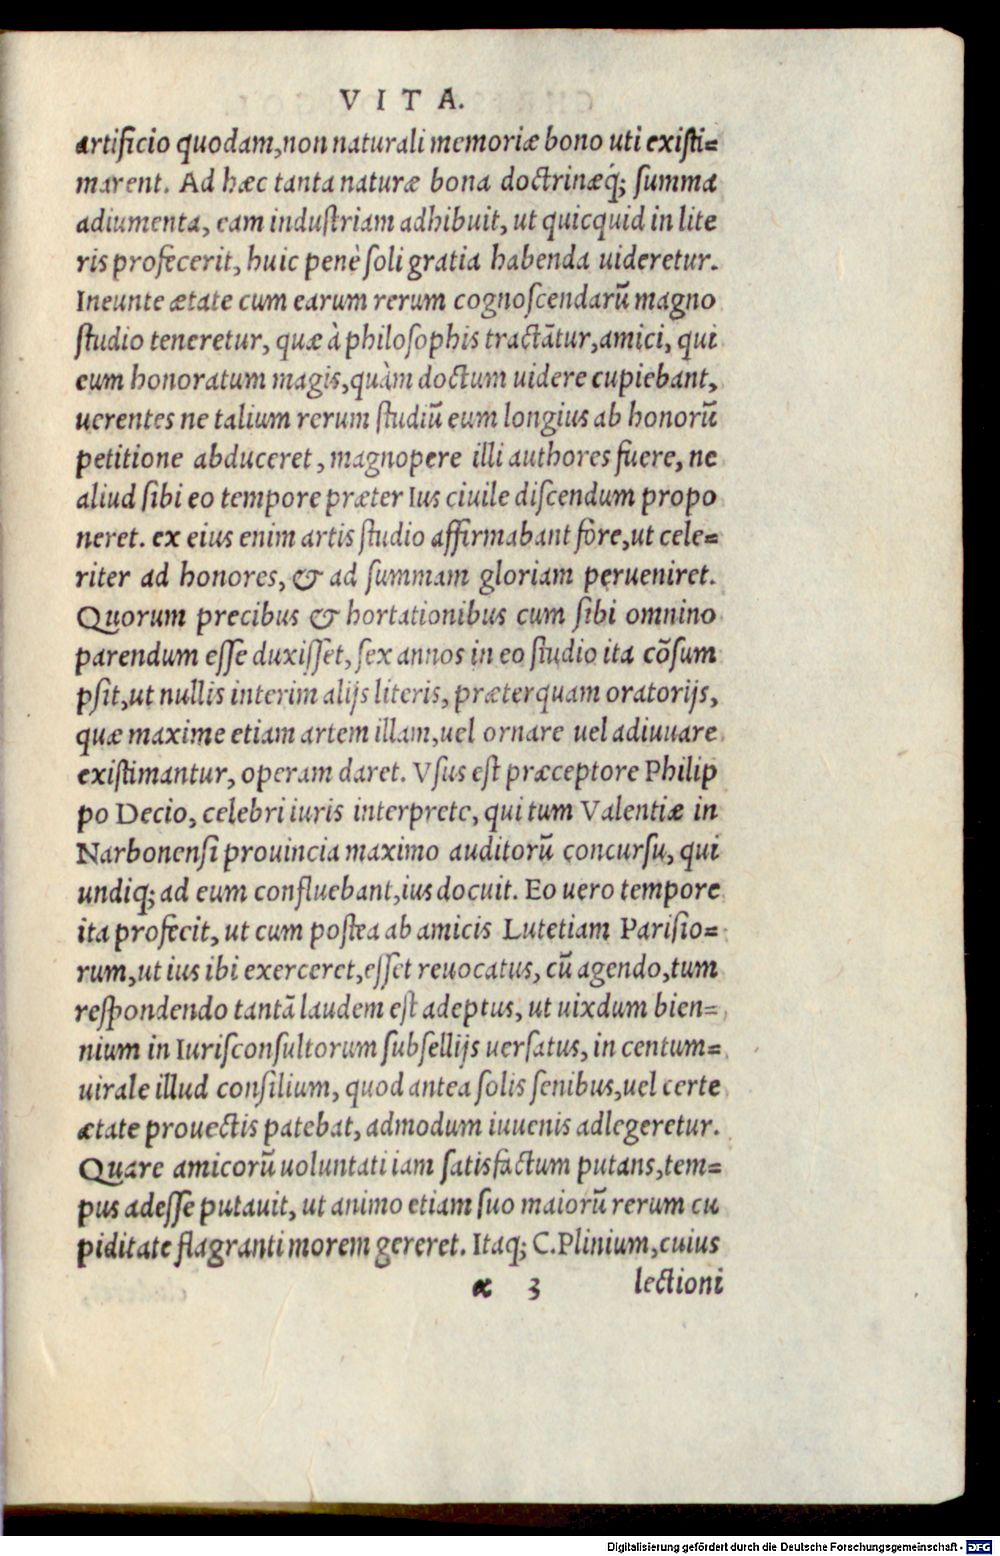 VITA.
artificio quodam, non naturali memoriæ bono uti existi=
marent. Ad hæc tanta naturæ bona doctrinæq́; summa
adiumenta, eam industriam adhibuit, ut quicquid in lite
ris profecerit, huic penè soli gratia habenda uideretur.
Ineunte ætate cum earum rerum cognoscendarũ magno
studio teneretur, quæ à philosophis tractãtur, amici, qui
eum honoratum magis, quàm doctum uidere cupiebant,
uerentes ne talium rerum studiũ eum longius ab honorũ
petitione abduceret, magnopere illi authores fuere, ne
aliud sibi eo tempore præter Ius ciuile discendum propo
neret. ex eius enim artis studio affirmabant fore, ut cele=
riter ad honores, & ad summam gloriam perueniret.
Quorum precibus & hortationibus cum sibi omnino
parendum esse duxisset, sex annos in eo studio ita cõsum
psit, ut nullis interim alijs literis, præterquam oratorijs,
quæ maxime etiam artem illam, uel ornare uel adiuuare
existimantur, operam daret. Vsus est præceptore Philip
po Decio, celebri iuris interprete, qui tum Valentiæ in
Narbonensi prouincia maximo auditorũ concursu, qui
undiq; ad eum confluebant, ius docuit. Eo uero tempore
ita profecit, ut cum postea ab amicis Lutetiam Parisio=
rum, ut ius ibi exerceret, esset reuocatus, cũ agendo, tum
respondendo tantã laudem est adeptus, ut uixdum bien=
nium in Iurisconsultorum subsellijs uersatus, in centum=
uirale illud consilium, quod antea solis senibus, uel certe
ætate prouectis patebat, admodum iuuenis adlegeretur.
Quare amicorũ uoluntati iam satisfactum putans, tem=
pus adesse putauit, ut animo etiam suo maiorũ rerum cu
piditate flagranti morem gereret. Itaq; C. Plinium, cuius
α 3 lectioni
Digitalisierung gefördert durch die Deutsche Forschungsgemeinschaft - DFG